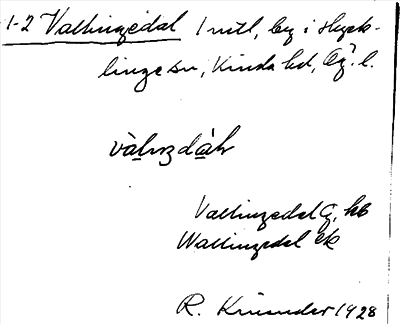 1-2 Vallingedal 1 mtl, by i Hyck-
linge sn, Kinda hd, Ög. l.
Vallingedal G, hb
Wallingedal Ek
R. Kinander 1928